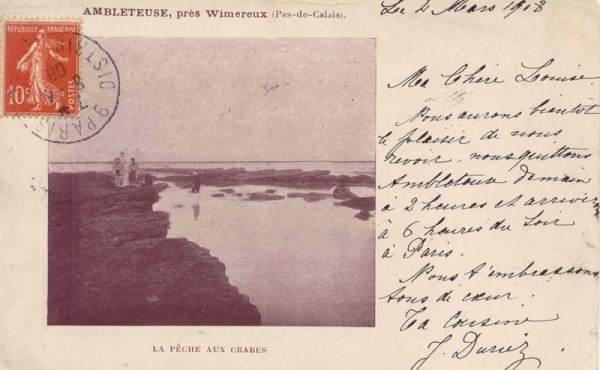 AMBLETEUSE, près Wimereux (Pas-de-Calais).
REPUBLIQUE FRANÇAISE
10c POSTES
PARIS DISTRIB
Le 2 Mars 1908
Ma Chère Louise
Nous aurons bientôt
le plaisir de nous
revoir, nous quittons
Ambleteuse demain
à 2 heures et arriver
à 6 heures du soir
à Paris.
Nous t'embrassons
tous de cœur.
Ta Cousine
J. Duriez
LA PÊCHE AUX CRABES